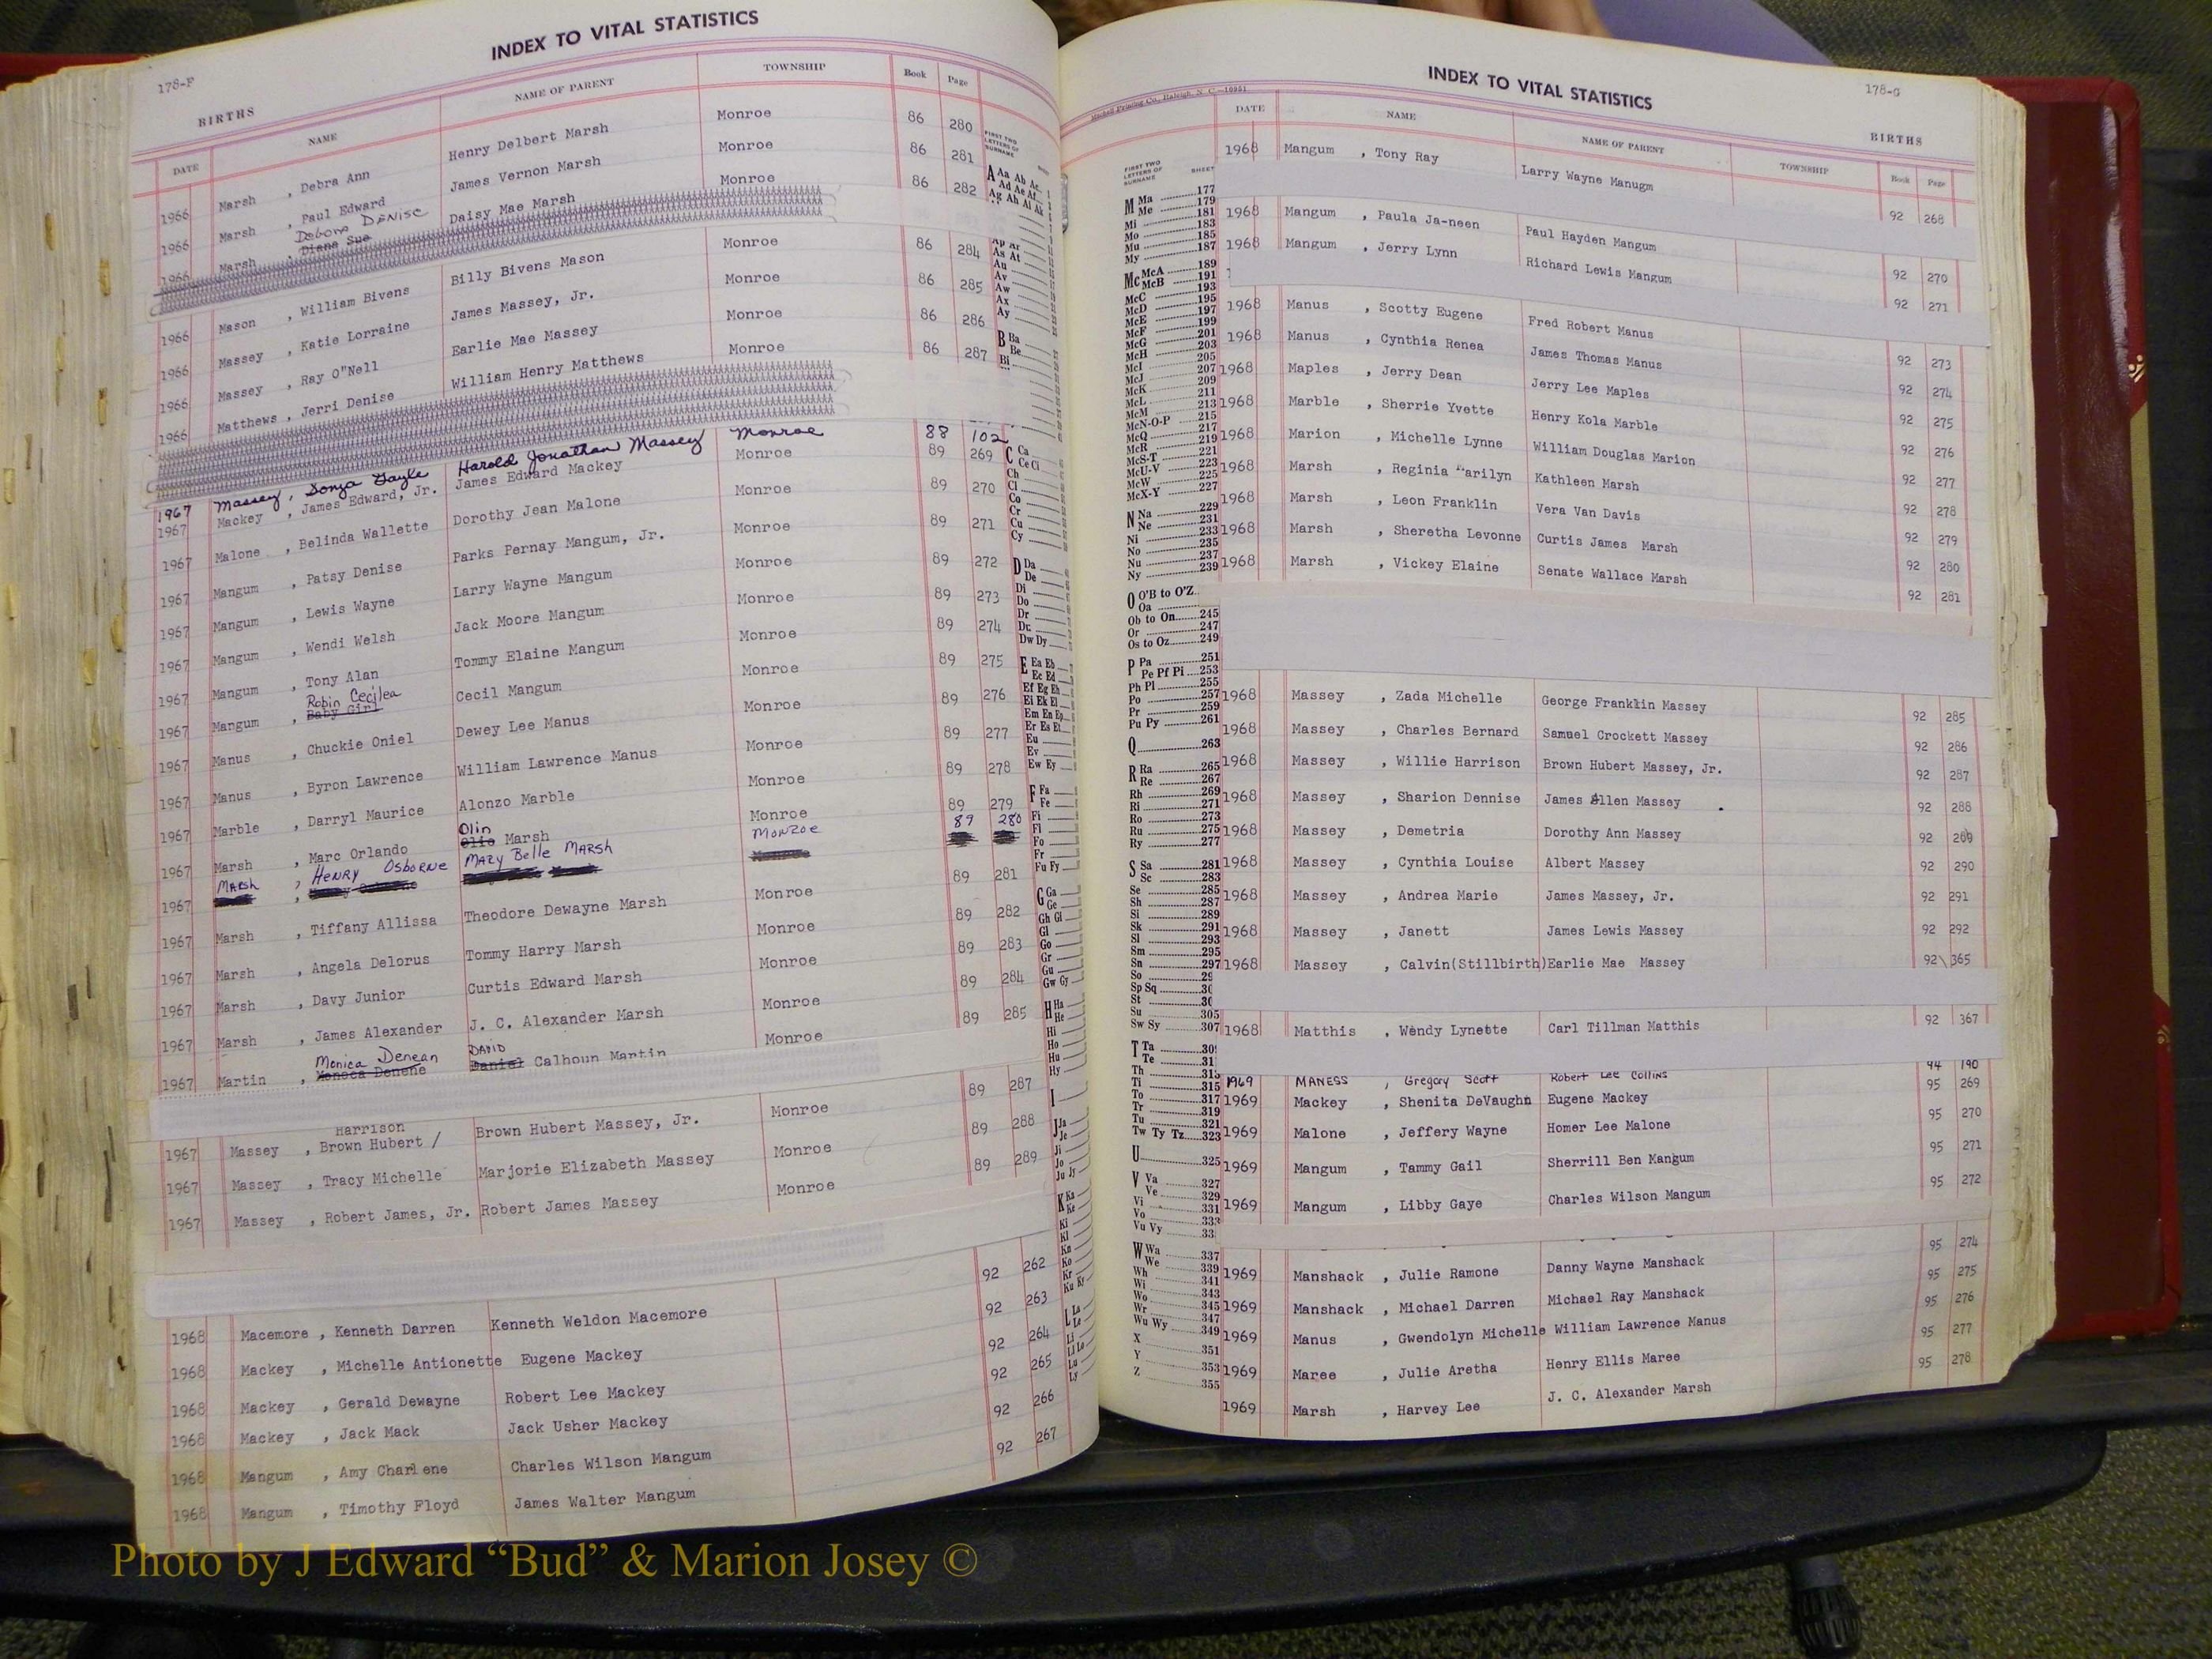 178-F
INDEX TO VITAL STATISTICS
BIRTHS
DATE NAME NAME OF PARENT TOWNSHIP Book Page
1966 Marsh , Debra Ann Henry Delbert Marsh Monroe 86 280
1966 Marsh , Paul Edward James Vernon Marsh Monroe 86 281
Debora Denise
1966 Marsh , Diane Sue Daisy Mae Marsh Monroe 86 282
1966 Mason , William Bivens Billy Bivens Mason Monroe 86 284
1966 Massey , Katie Lorraine James Massey, Jr. Monroe 86 285
1966 Massey , Ray O"Nell Earlie Mae Massey Monroe 86 286
1966 Matthews , Jerri Denise William Henry Matthews Monroe 86 287
1967 Massey , Sonja Gayle Harold Jonathan Massey Monroe 88 102
1967 Mackey , James Edward, Jr. James Edward Mackey Monroe 89 269
1967 Malone , Belinda Wallette Dorothy Jean Malone Monroe 89 270
1967 Mangum , Patsy Denise Parks Pernay Mangum, Jr. Monroe 89 271
1967 Mangum , Lewis Wayne Larry Wayne Mangum Monroe 89 272
1967 Mangum , Wendi Welsh Jack Moore Mangum Monroe 89 273
1967 Mangum , Tony Alan Tommy Elaine Mangum Monroe 89 274
Robin Cecilea
1967 Mangum , Baby Girl Cecil Mangum Monroe 89 275
1967 Manus , Chuckie Oniel Dewey Lee Manus Monroe 89 276
1967 Manus , Byron Lawrence William Lawrence Manus Monroe 89 277
1967 Marble , Darryl Maurice Alonzo Marble Monroe 89 278
Olin
1967 Marsh , Marc Orlando Olio Marsh Monroe 89 279
1967 Marsh , Henry Osborne Mary Belle Marsh Monroe 89 280
1967 Marsh , Tiffany Allissa Theodore Dewayne Marsh Monroe 89 281
1967 Marsh , Angela Delorus Tommy Harry Marsh Monroe 89 282
1967 Marsh , Davy Junior Curtis Edward Marsh Monroe 89 283
1967 Marsh , James Alexander J. C. Alexander Marsh Monroe 89 284
Monica Denean David
1967 Martin , Monoca Denene Daniel Calhoun Martin Monroe 89 285
Harrison
1967 Massey , Brown Hubert / Brown Hubert Massey, Jr. Monroe 89 287
1967 Massey , Tracy Michelle Marjorie Elizabeth Massey Monroe 89 288
1967 Massey , Robert James, Jr. Robert James Massey Monroe 89 289
1968 Macemore , Kenneth Darren Kenneth Weldon Macemore 92 262
1968 Mackey , Michelle Antionette Eugene Mackey 92 263
1968 Mackey , Gerald Dewayne Robert Lee Mackey 92 264
1968 Mackey , Jack Mack Jack Usher Mackey 92 265
1968 Mangum , Amy Charlene Charles Wilson Mangum 92 266
1968 Mangum , Timothy Floyd James Walter Mangum 92 267
FIRST TWO LETTERS OF SURNAME
A Aa Ab Ac
Ad Ae Af
Ag Ah Ai Ak
Ap Ar
As At
Au
Av
Aw
Ax
Ay
B Ba
Be
Bi
C Ca
Ce Ci
Ch
Cl
Co
Cr
Cu
Cy
D Da
De
Di
Do
Dr
Du
Dw Dy
E Ea Eb
Ec Ed
Ef Eg Eh
Ei Ek El
Em En Ep
Er Es Et
Eu
Ev
Ew Ey
F Fa
Fe
Fi
Fl
Fo
Fr
Fu Fy
G Ga
Ge
Gh Gi
Gl
Go
Gr
Gu
Gw Gy
H Ha
He
Hi
Ho
Hu
Hy
I
J Ja
Je
Ji
Jo
Ju Jy
K Ka
Ke
Ki
Kl
Kn
Ko
Kr
Ku Ky
L La
Le
Li
Ll Lo
Lu
Ly
INDEX TO VITAL STATISTICS
178-G
Mitchell Printing Co., Raleigh, N. C.-10951
BIRTHS
DATE NAME NAME OF PARENT TOWNSHIP Book Page
1968 Mangum , Tony Ray Larry Wayne Manugm 92 268
1968 Mangum , Paula Ja-neen Paul Hayden Mangum 92 270
1968 Mangum , Jerry Lynn Richard Lewis Mangum 92 271
1968 Manus , Scotty Eugene Fred Robert Manus 92 273
1968 Manus , Cynthia Renea James Thomas Manus 92 274
1968 Maples , Jerry Dean Jerry Lee Maples 92 275
1968 Marble , Sherrie Yvette Henry Kola Marble 92 276
1968 Marion , Michelle Lynne William Douglas Marion 92 277
1968 Marsh , Reginia "arilyn Kathleen Marsh 92 278
1968 Marsh , Leon Franklin Vera Van Davis 92 279
1968 Marsh , Sheretha Levonne Curtis James Marsh 92 280
1968 Marsh , Vickey Elaine Senate Wallace Marsh 92 281
1968 Massey , Zada Michelle George Franklin Massey 92 285
1968 Massey , Charles Bernard Samuel Crockett Massey 92 286
1968 Massey , Willie Harrison Brown Hubert Massey, Jr. 92 287
1968 Massey , Sharion Dennise James Allen Massey 92 288
1968 Massey , Demetria Dorothy Ann Massey 92 289
1968 Massey , Cynthia Louise Albert Massey 92 290
1968 Massey , Andrea Marie James Massey, Jr. 92 291
1968 Massey , Janett James Lewis Massey 92 292
1968 Massey , Calvin(Stillbirth) Earlie Mae Massey 92 365
1968 Matthis , Wendy Lynette Carl Tillman Matthis 92 367
1969 Maness , Gregory Scott Robert Lee Collins 94 190
1969 Mackey , Shenita DeVaughn Eugene Mackey 95 269
1969 Malone , Jeffery Wayne Homer Lee Malone 95 270
1969 Mangum , Tammy Gail Sherrill Ben Mangum 95 271
1969 Mangum , Libby Gaye Charles Wilson Mangum 95 272
1969 Manshack , Julie Ramone Danny Wayne Manshack 95 274
1969 Manshack , Michael Darren Michael Ray Manshack 95 275
1969 Manus , Gwendolyn Michelle William Lawrence Manus 95 276
1969 Maree , Julie Aretha Henry Ellis Maree 95 277
1969 Marsh , Harvey Lee J. C. Alexander Marsh 95 278
FIRST TWO LETTERS OF SURNAME SHEET
M Ma 177
Me 179
Mi 181
Mo 183
Mu 185
My 187
Mc McA 189
McB 191
McC 193
McD 195
McE 197
McF 199
McG 201
McH 203
McI 205
McJ 207
McK 209
McL 211
McM 213
McN-O-P 215
McQ 217
McR 219
McS-T 221
McU-V 223
McW 225
McX-Y 227
N Na 229
Ne 231
Ni 233
No 235
Nu 237
Ny 239
O O'B to O'Z
Oa
Ob to On 245
Or 247
Os to Oz 249
P Pa 251
Pe Pf Pi 253
Ph Pl 255
Po 257
Pr 259
Pu Py 261
Q 263
R Ra 265
Re 267
Rh 269
Ri 271
Ro 273
Ru 275
Ry 277
S Sa 281
Sc 283
Se 285
Sh 287
Si 289
Sk 291
Sl 293
Sm 295
Sn 297
So
Sp Sq
St
Su 305
Sw Sy 307
T Ta
Te
Th 313
Ti 315
To 317
Tr 319
Tu 321
Tw Ty Tz 323
U 325
V Va 327
Ve 329
Vi 331
Vo 333
Vu Vy
W Wa 337
We 339
Wh 341
Wi 343
Wo 345
Wr 347
Wu Wy 349
X 351
Y 353
Z 355
Photo by J Edward “Bud” & Marion Josey ©